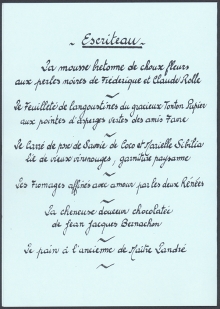 ~ Escriteau ~
La mousse bretonne de choux fleurs
aux perles noires de Frédérique et Claude Rolle
~
Le Feuilleté de langoustines du gracieux Tonton Papier
aux pointes d'asperges vertes des amis Favre
~
Le Carré de porc de Savoie de Coco et Marielle Sibilia
lié de vieux vinrouges, garniture paysanne
~
Les Fromages affinés avec amour par les deux Renées
~
La cheneuse douceur chocolatée
de Jean Jacques Bernachon
~
Le pain à l'ancienne de Maître Landré
~